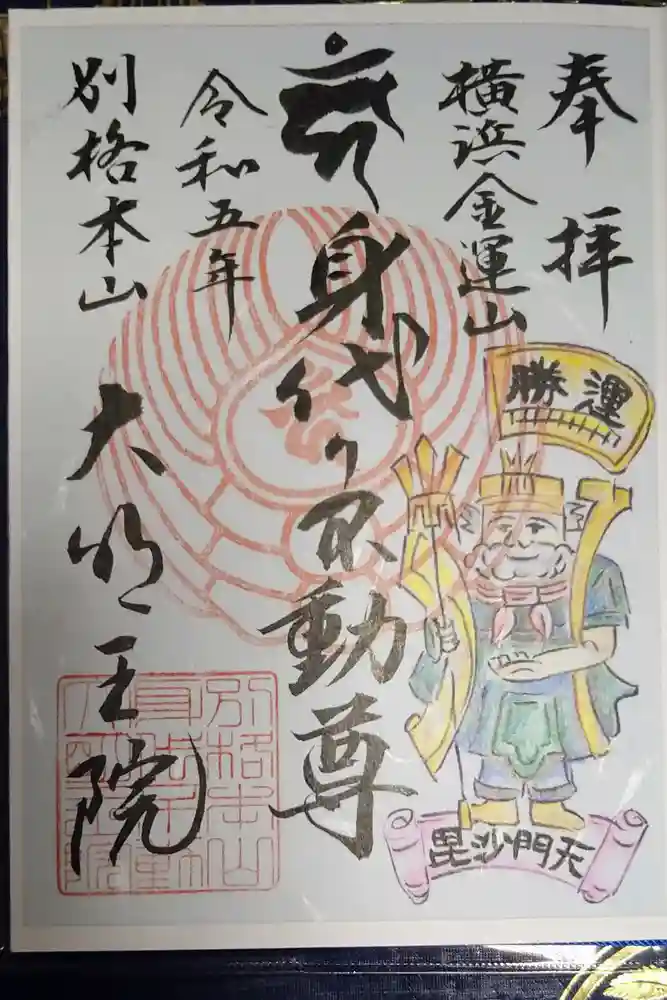 奉拝
横浜金運山
身代り不動尊
令和五年
別格本山
大明王院
勝運
毘沙門天